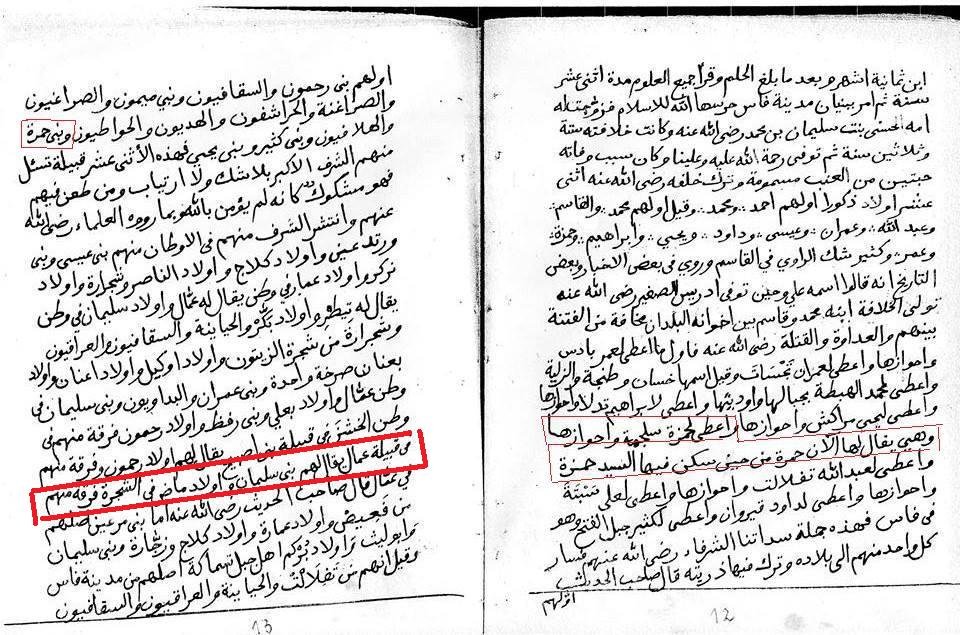 ابن ثمانية اشهر وبعد ما بلغ الحلم وقرأ جميع العلوم مدة اثنى عشر
سنة ثم أمر ببنيان مدينة فاس حرسها الله للاسلام
امه الحسنى بنت سليمان بن محمد رضي الله عنه وكانت خلافته ستة
وثلاثين سنة ثم توفى رحمة الله عليه وعلينا وكان سبب وفاته
حبتين من العنب مسمومة وترك خلفه رضي الله عنه اثنى
عشر اولاد ذكورا اولهم احمد ومحمد وقيل اولهم محمد والقاسم
وعبد الله وعمران وعيسى وداود ويحيى وابراهيم وحمزة
وعمر وكثير شك الراوي في القاسم وروي في بعض الاخبار وبعض
التاريخ انه قالوا اسمه علي وحين توفى ادريس الصغير رضي الله عنه
تولى الخلافة ابنه محمد وقاسم بين اخوانه البلدان مخافة من الفتنة
بينهم والعداوة والقتلة رضي الله عنه فاول ما اعطى لعمر بادس
واحوازها واعطى لعمران تجساس وقيل اسمها خسان وطنجة والزلية
واعطى لمحمد الهبطة بجبالها واعطى لابراهيم تدلا واحوازها
واعطى ليحيى مراكش واحوازها واعطى لحمزة سلجمية واحوازها
وهي يقال لها الآن حمزة من حين سكن فيها السيد حمزة
واعطى لعبد الله تفلالت واحوازها واعطى لعلي سبتة
واحوازها واعطى لداود قيروان واعطى لكثير جبل الفتح وهو
في فاس فهذه جملة سداتنا الشرفاء رضي الله عنهم فسار
كل واحد منهم الى بلاده وترك فيها ذريته قال صاحب الحديث
اولهم
12
اولهم بنى رحمون والسقافيون وبني ميمون والصراغنيون
والصراغنة والحراشفون والهديون والحواطيون وبنى حمزة
والهلافيون وبنى كثير وبنى يحيى فهذه الأثنى عشر قبيلة تسئل
منهم الشرف الأكبر بلا شك ولا ارتياب ومن طعن فيهم
فهو مشكوك كانه لم يؤمن بالله وبما رووه العلماء رضي الله
عنهم وانتشر الشرف منهم في الاوطان منهم بنى عيسى وبنى
ورتدغين واولاد كلاج واولاد الناصر وشجارة واولاد
تركوا واولاد عمار في وطن يقال له عمال واولاد سليمان في وطن
يقال له تيطر واولاد بكرة والحيانية والسقافيون والعراقيون
وشجرارة من شجرة الزيتون واولاد اوكيل واولاد اعنان واولاد
بعنان صرخة واحدة وبنى عمران والبداويون وبنى سليمان في
وطن عمال واولاد بعلي وبنى رفظ واولاد رحمون فرقة منهم في
وطن الخشنى في قبيلة يقال لهم اولاد رحمون وفرقة منهم
في قبيلة عمال يقال لهم بنى سليمان واولاد ماض في الشجرة فرقة منهم
في عمال قال صاحب الحديث رضي الله عنه اما بنى مرعين اصلهم
من واولاد عمارة واولاد كلاج وبنى سليمان
وابوليث واولاد بركم اهل جبل شماكة اصلهم من مدينة فاس
وقيل انهم من تفلالت والحيانية والعراقيون والسقافيون
13